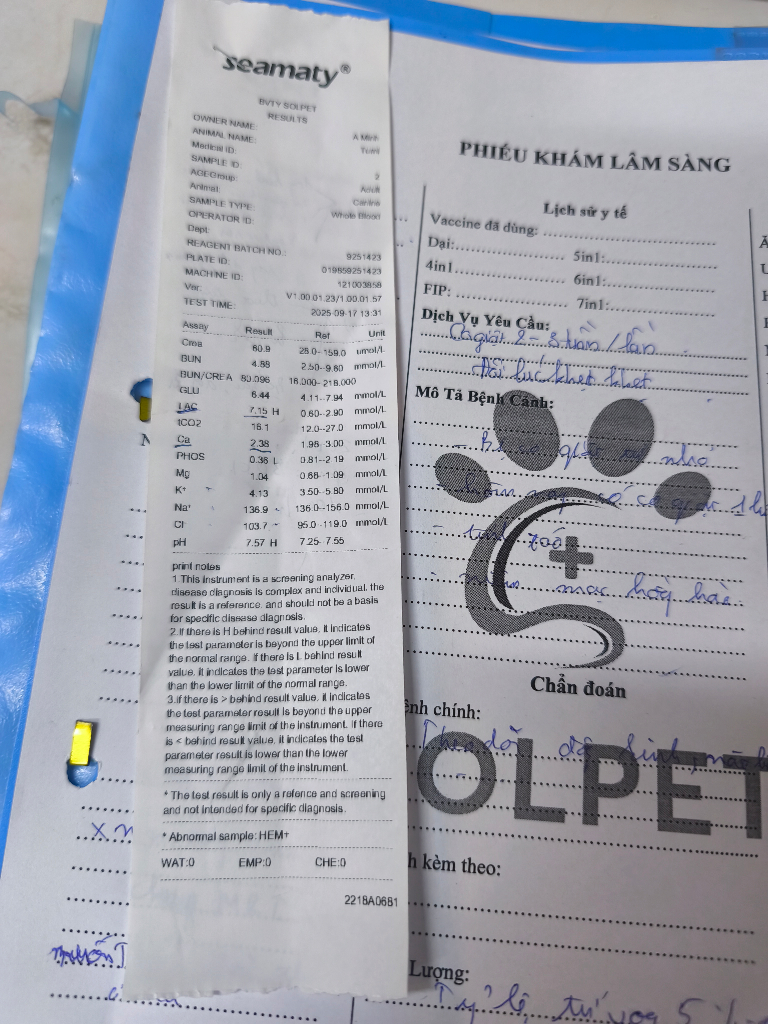 seamaty®
BVTY SOLPET
RESULTS
OWNER NAME: A Minh
ANIMAL NAME:
Medical ID:
SAMPLE ID: 2
AGEGroup: Adult
Animal: Canine
SAMPLE TYPE: Whole Blood
OPERATOR ID:
Dept:
REAGENT BATCH NO.: 9251423
PLATE ID: 019859251423
MACHINE ID: 121003858
Ver: V1.00.01.23/1.00.01.57
TEST TIME: 2025-09-17 13:31
Assay Result Ref Unit
Crea 60.9 28.0--159.0 umol/L
BUN 4.88 2.50--9.60 mmol/L
BUN/CREA 80.096 16.000--218.000
GLU 6.44 4.11--7.94 mmol/L
LAC 7.15 H 0.60--2.90 mmol/L
tCO2 18.1 12.0--27.0 mmol/L
Ca 2.38 1.98--3.00 mmol/L
PHOS 0.38 L 0.81--2.19 mmol/L
Mg 1.04 0.68--1.09 mmol/L
K+ 4.13 3.50--5.80 mmol/L
Na+ 136.9 136.0--156.0 mmol/L
Cl- 103.7 95.0--119.0 mmol/L
pH 7.57 H 7.25--7.55
print notes
1.This instrument is a screening analyzer,
disease diagnosis is complex and individual, the
result is a reference, and should not be a basis
for specific disease diagnosis.
2.If there is H behind result value, it indicates
the test parameter is beyond the upper limit of
the normal range. If there is L behind result
value, it indicates the test parameter is lower
than the lower limit of the normal range.
3.if there is > behind result value, it indicates
the test parameter result is beyond the upper
measuring range limit of the instrument. If there
is < behind result value, it indicates the test
parameter result is lower than the lower
measuring range limit of the instrument.
* The test result is only a refence and screening
and not intended for specific diagnosis.
* Abnormal sample: HEM+
WAT:0 EMP:0 CHE:0
2218A0681
PHIẾU KHÁM LÂM SÀNG
Lịch sử y tế
Vaccine đã dùng:
Dại: 5in1:
4in1 6in1:
FIP: 7in1:
Dịch Vụ Yêu Cầu:
Co giật 2 - 3 lần / lần
Mô Tả Bệnh Cảnh:
nhỏ
có co giật
hồng hào
Chẩn đoán
ệnh chính:
Theo dõi
OLPET
h kèm theo:
Lượng:
Tỷ lệ tử vong